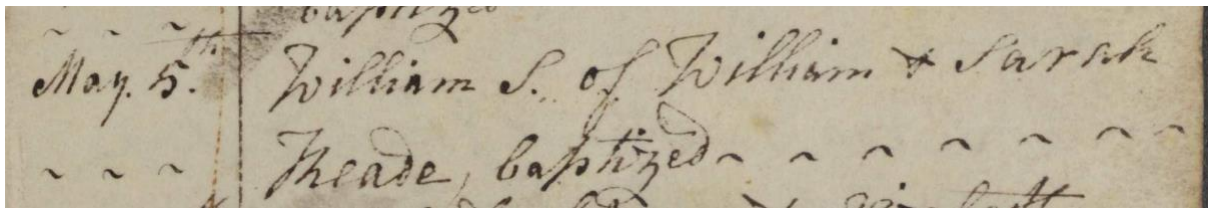 baptized
May. 5.th William S. of William & Sarah
Reade, baptized